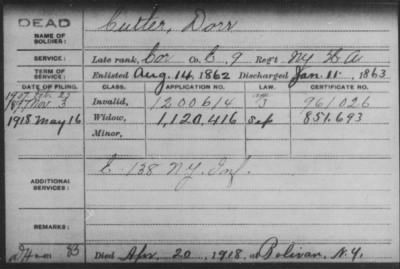 DEAD
NAME OF SOLDIER:
Cutler, Dorr
SERVICE:
Late rank, Cor Co. C, 9 Regt. NY H A
TERM OF SERVICE:
Enlisted Aug. 14, 1862 Discharged Jan. 11, 1863
DATE OF FILING. CLASS. APPLICATION NO. LAW. CERTIFICATE NO.
1897 Nov. 3 Invalid, 1200614 961026
1918 May 16 Widow, 1,120,416 Sep 851.693
Minor,
ADDITIONAL SERVICES:
E 138 N.Y. Inf.
REMARKS:
83 Died Apr. 20, 1918, at Bolivar, N.Y.